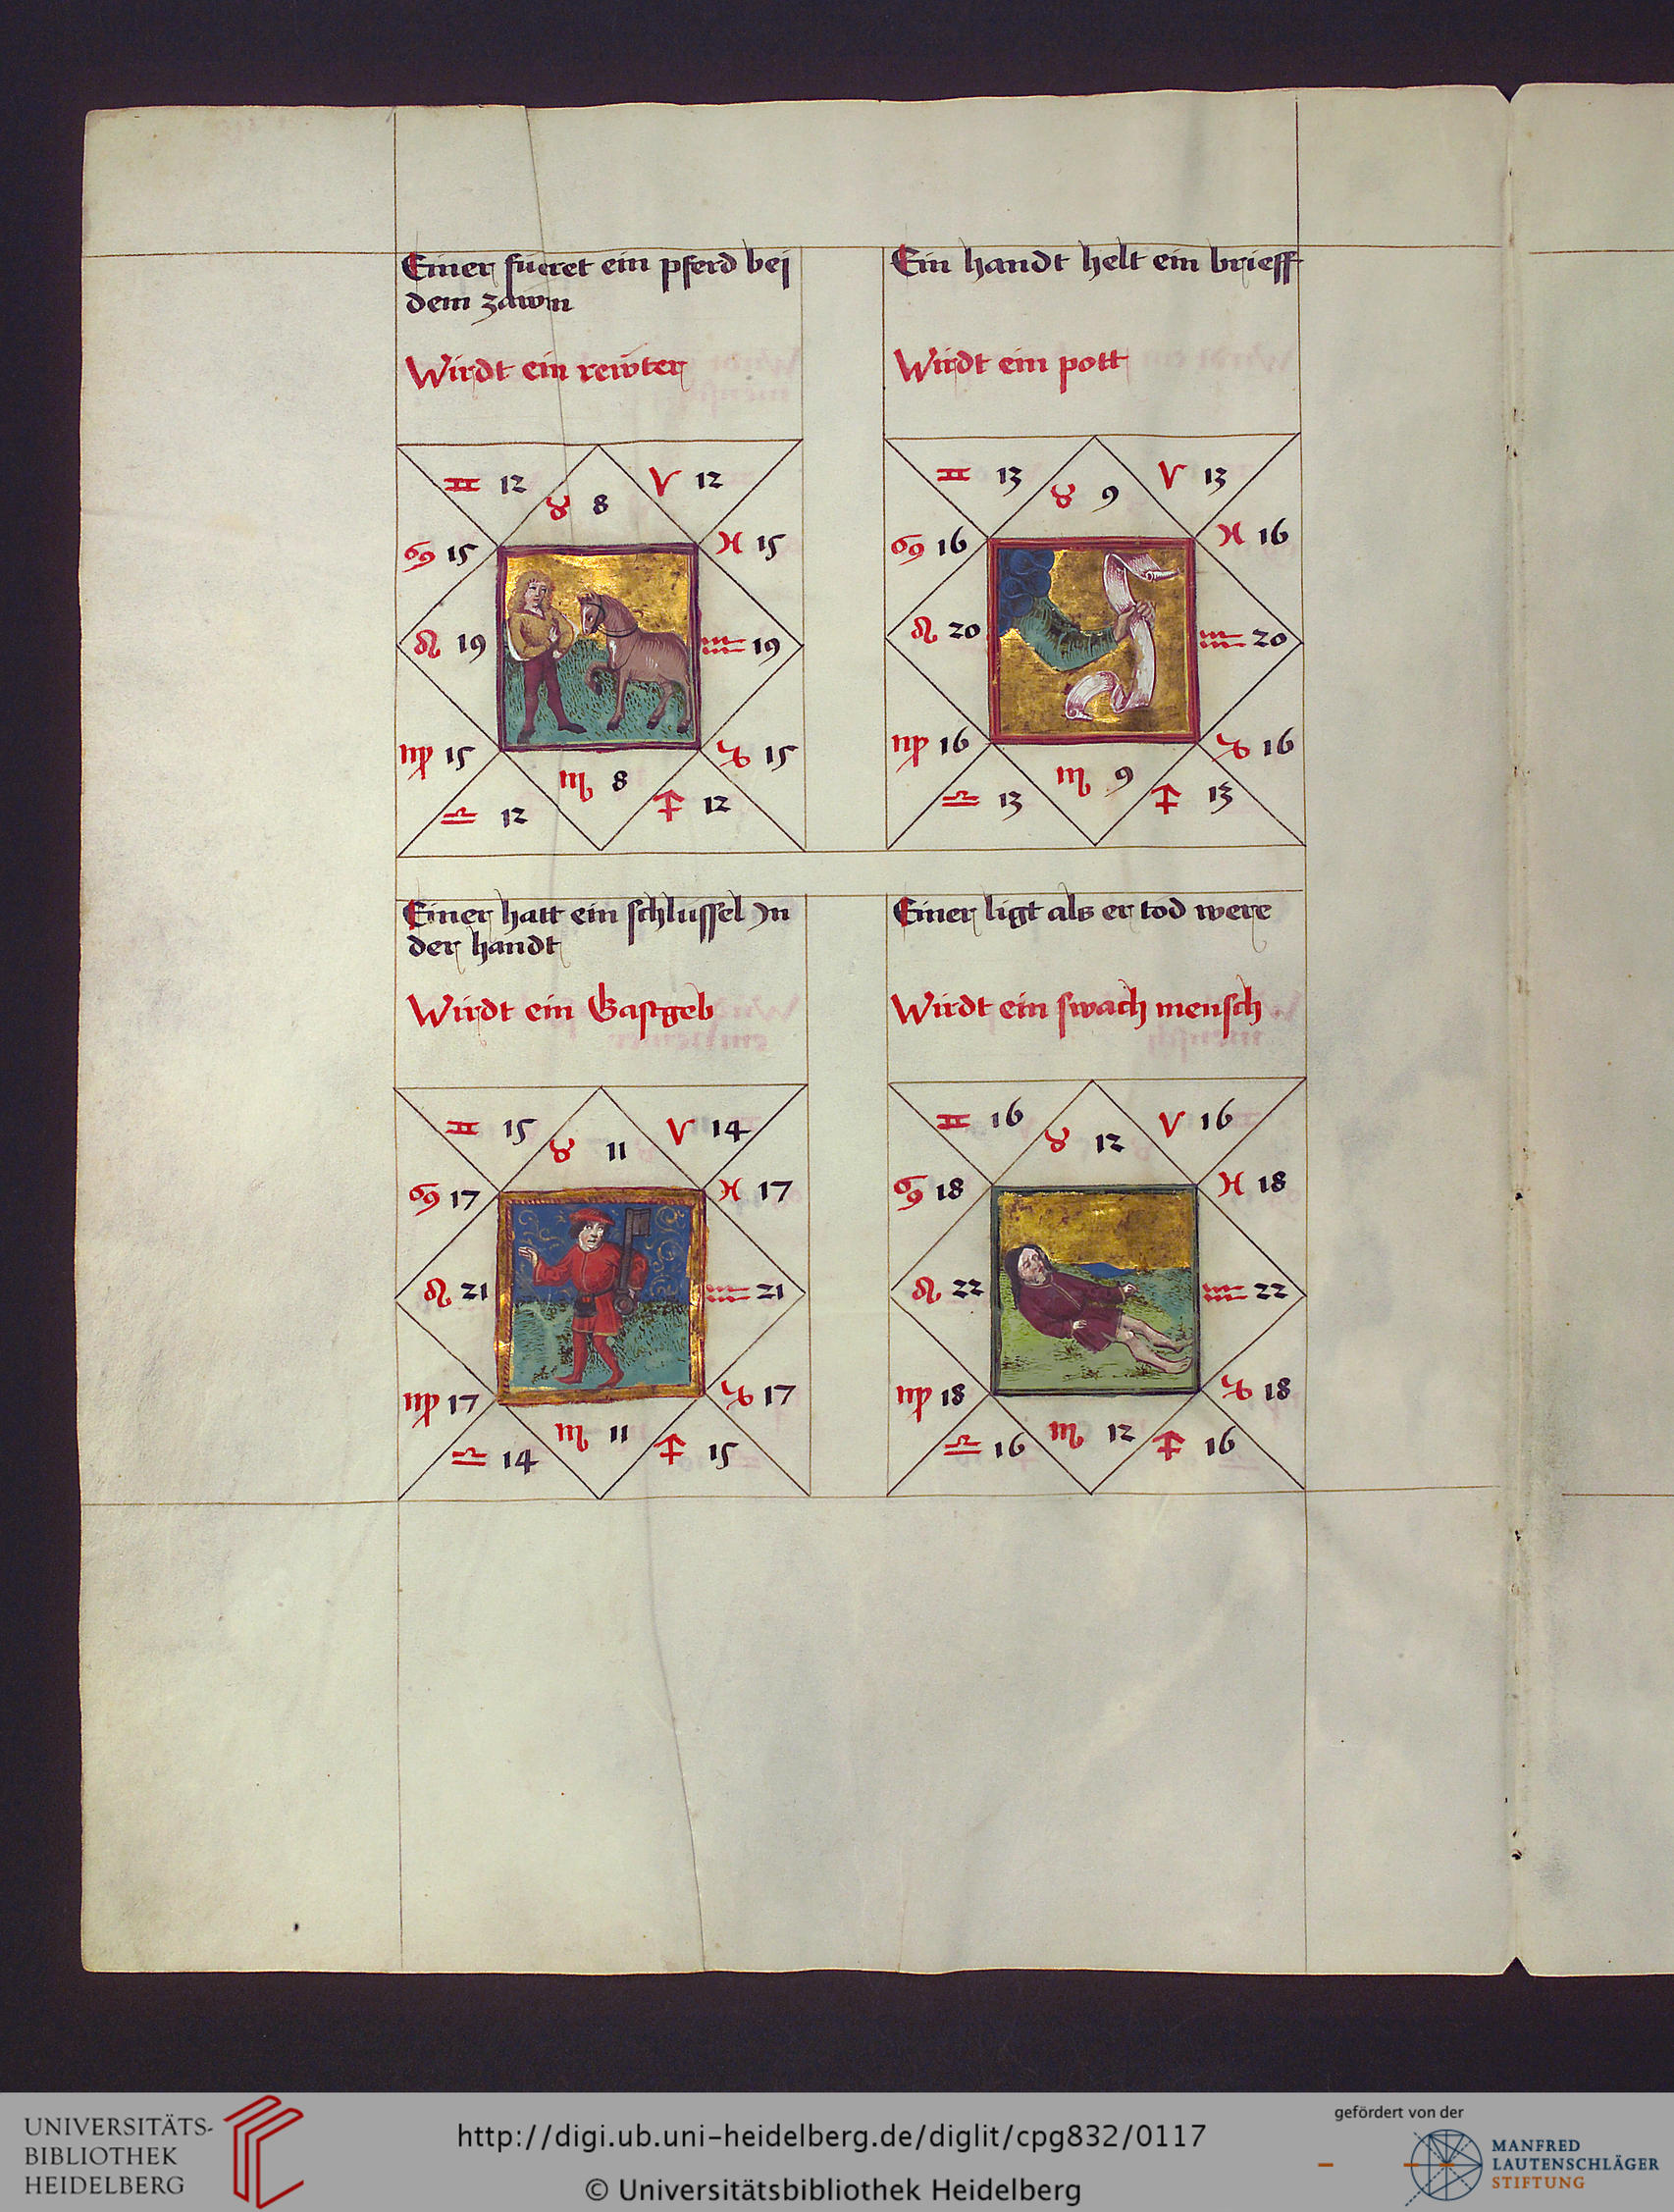 Einer fueret ein pferd bei
dem zawm
Wirdt ein rewter
♊ 12
♉ 8
♈ 12
♋ 15
♓ 15
♌ 19
♒ 19
♍ 15
♑ 15
♎ 12
♏ 8
♐ 12
Ein handt helt ein brieff
Wirdt ein pott
♊ 13
♉ 9
♈ 13
♋ 16
♓ 16
♌ 20
♒ 20
♍ 16
♑ 16
♎ 13
♏ 9
♐ 13
Einer hatt ein schlussel Jn
der handt
Wirdt ein Gastgeb
♊ 15
♉ 11
♈ 14
♋ 17
♓ 17
♌ 21
♒ 21
♍ 17
♑ 17
♎ 14
♏ 11
♐ 15
Einer ligt als er tod were
Wirdt ein swach mensch
♊ 16
♉ 12
♈ 16
♋ 18
♓ 18
♌ 22
♒ 22
♍ 18
♑ 18
♎ 16
♏ 12
♐ 16
UNIVERSITÄTS-
BIBLIOTHEK
HEIDELBERG
http://digi.ub.uni-heidelberg.de/diglit/cpg832/0117
© Universitätsbibliothek Heidelberg
gefördert von der
MANFRED
LAUTENSCHLÄGER
STIFTUNG